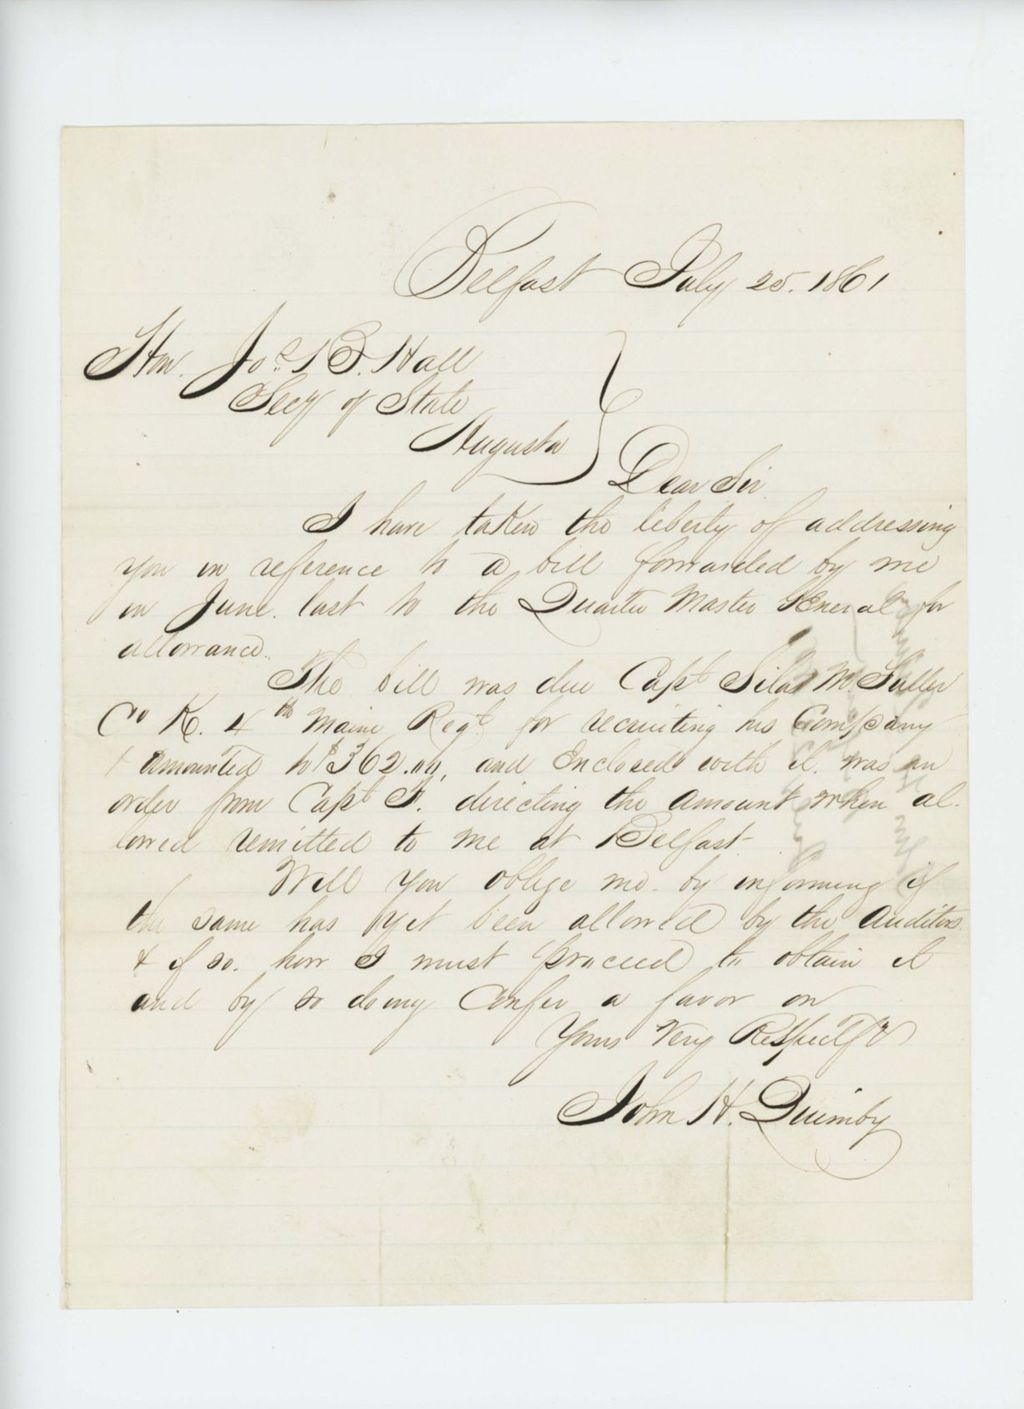 Belfast July 25. 1861
Hon. Jos. B. Hall
Secy of State
Augusta
Dear Sir
I have taken the liberty of addressing
you in reference to a bill forwarded by me
in June last to the Quarter Master General for
allowance.
The bill was due Capt Silas M. Fuller
Co K. 4th Maine Regt for recruiting his Company
& amounted to $362.09, and Enclosed with it was an
order from Capt F. directing the amount when al-
lowed remitted to me at Belfast
Will you oblige me by informing if
the same has yet been allowed by the Auditors
& if so. how I must proceed to obtain it
and by so doing Confer a favor on
Yours Very Respectfy
John H. Quimby